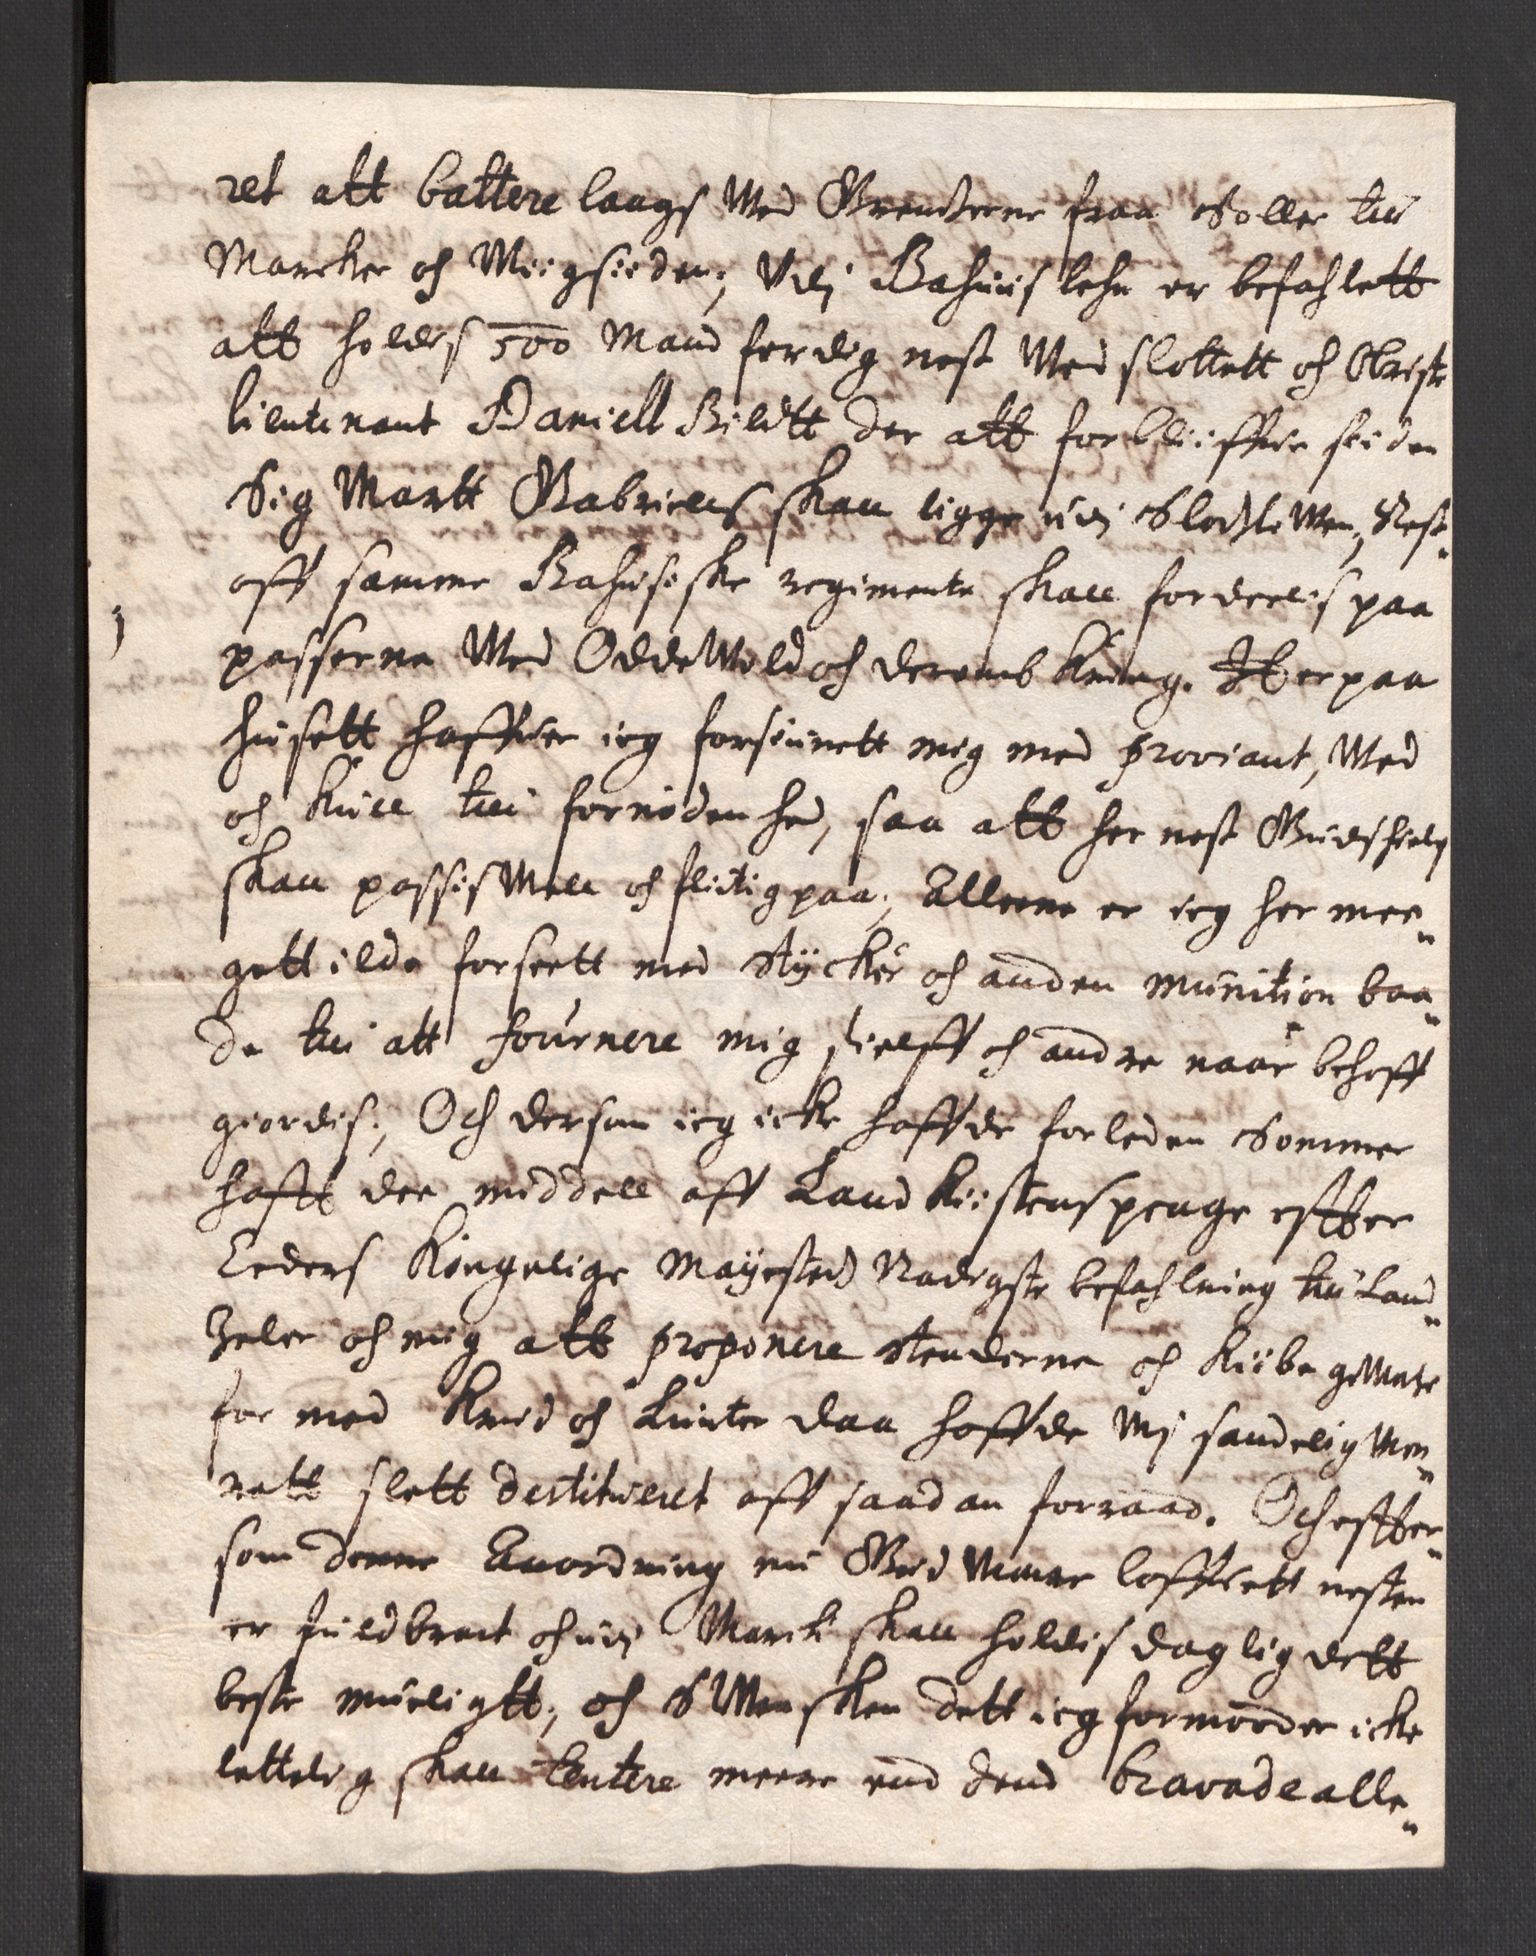 ret att battere laags Wed Grendserne fraa Soller till
Marcker och Miigsiiden; Vdj Bahuus lehn er befahlett
att holdis 500 Mand ferdig nest Wed slottett och Obriste
lieutenant Daniell Bildtt der att forbliiffue siiden
Sig Martt Gabriels skall ligge udj Slodzlowen, Rest
aff samme Bahusiske regimente skall fordeelis paa
passerne Wed OddeWold och deromb kring. Her paa
huusett haffuer ieg forsiunett mig med proviant, Wed
och Kull till fornødenhed, saa att her nest Gudshielp
skall passis Well och flitig paa; Allerne er ieg her mee-
gett ilde forseett med stÿcker och anden munition baa-
de till att fournere mig sielff och andre naar behoff
giordis; Och dersom ieg icke haffde forleden Sommer
hafft dee middell aff Landkiistenspenge effter
Eders Kongelige Maÿested Nadigste befahlning till Land-
Zeler och mig att proponere stenderne och kiibe geWehr
for med krud och Lunter daa haffde Wj sandelig Wer-
rett slett destitueret aff saadan forraad. Och effter-
som denne Anordning nu Gud Werre loffuett nesten
er fuldbract och udj Marck skall holdis daglig dett
beste mueligtt; och SWensken dett ieg formoder icke
lettelig skall tentere meere end dend bravade alle-